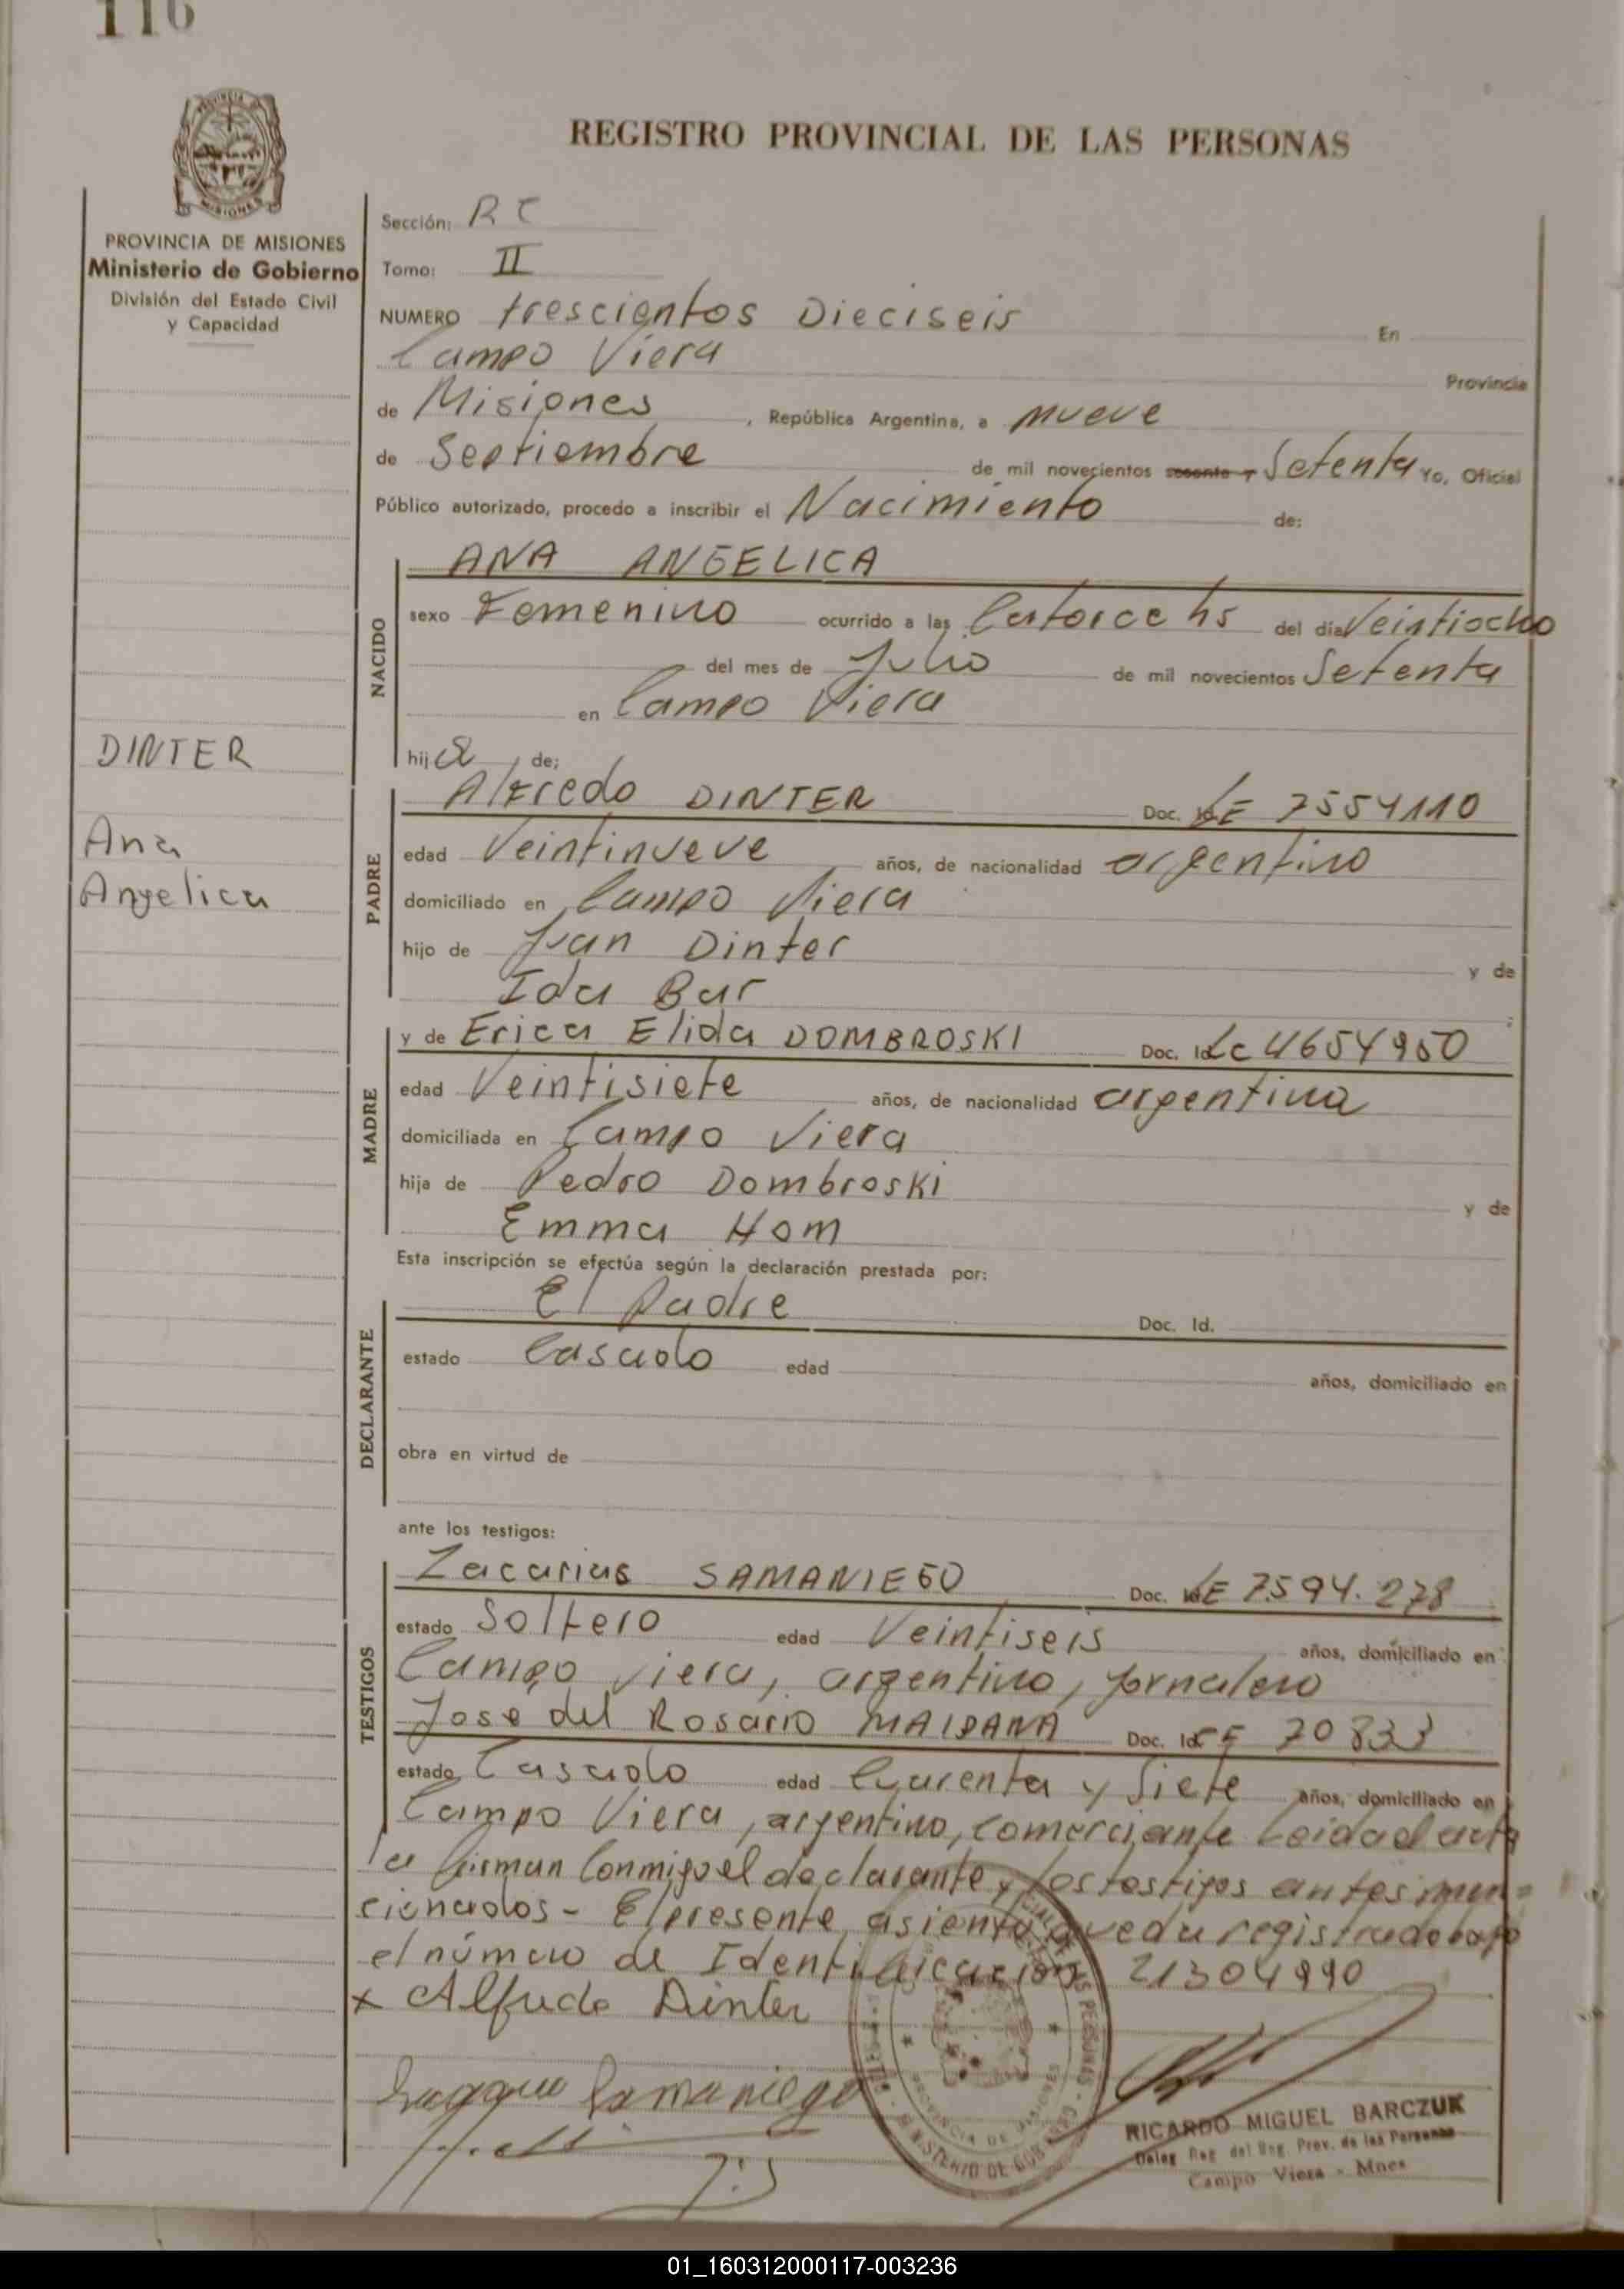 116
REGISTRO PROVINCIAL DE LAS PERSONAS
PROVINCIA DE MISIONES
Ministerio de Gobierno
División del Estado Civil
y Capacidad
Sección: RC
Tomo: II
NUMERO trescientos Dieciseis En
Campo Viera Provincia
de Misiones, República Argentina, a nueve
de Septiembre de mil novecientos sesenta y Setenta Yo, Oficial
Público autorizado, procedo a inscribir el Nacimiento de:
NACIDO
ANA ANGELICA
sexo Femenino ocurrido a las Catorce hs del día Veintiocho
del mes de Julio de mil novecientos Setenta
en Campo Viera
hija de;
DINTER
Ana
Angelica
PADRE
Alfredo DINTER Doc. Id. LE 7554110
edad Veintinueve años, de nacionalidad argentino
domiciliado en Campo Viera
hijo de Juan Dinter y de
Ida Bar
MADRE
y de Erica Elida DOMBROSKI Doc. Id. LC 4654950
edad Veintisiete años, de nacionalidad argentina
domiciliada en Campo Viera
hija de Pedro Dombroski y de
Emma Hom
Esta inscripción se efectúa según la declaración prestada por:
DECLARANTE
El Padre Doc. Id.
estado Casado edad años, domiciliado en
obra en virtud de
ante los testigos:
TESTIGOS
Zacarias SAMANIEGO Doc. Id. LE 7.594.278
estado Soltero edad Veintiseis años, domiciliado en
Campo Viera, argentino, jornalero
Jose del Rosario MAIDANA Doc. Id. 20833
estado Casado edad Cuarenta y Siete años, domiciliado en
Campo Viera, argentino, Comerciante Leida el acta
la firman Conmigo el declarante y los testigos antes men=
cionados - El presente asiento queda registrado bajo
el número de Identificacion 21304990
x Alfredo Dinter
Samaniego
MINISTERIO DE GOBIERNO
PROVINCIA DE MISIONES
RICARDO MIGUEL BARCZUK
Deleg Reg del Reg. Prov. de las Personas
Campo Viera - Mnes
01_160312000117-003236